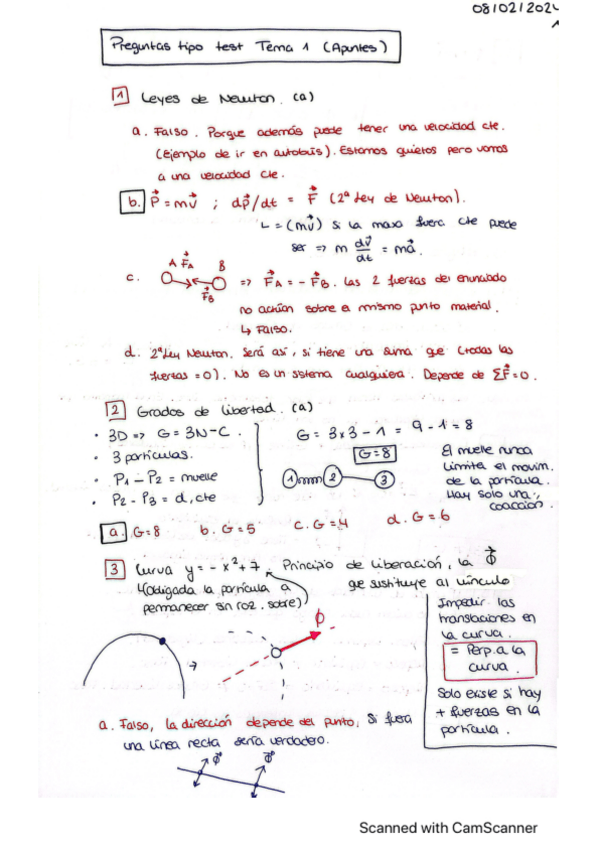 08/02/2024
1
Preguntas tipo test Tema 1 (Apuntes)
1 Leyes de Newton. (a)
a. Falso. Porque además puede tener una velocidad cte.
(Ejemplo de ir en autobús). Estamos quietos pero vamos
a una velocidad cte.
b. P⃗ = mv⃗ ; dp⃗/dt = F⃗ (2ª Ley de Newton).
L = (mv⃗) Si la masa fuera cte puede
ser => m dv⃗/dt = ma⃗.
A F⃗A B
c. F⃗B => F⃗A = - F⃗B. Las 2 fuerzas del enunciado
no actúan sobre el mismo punto material.
↳ Falso.
d. 2ª Ley Newton. Será así, si tiene una suma que (todas las
fuerzas = 0). No es un sistema cualquiera. Depende de ΣF⃗ = 0.
2 Grados de libertad. (a)
· 3D => G = 3N - C.
· 3 partículas.
· P1 - P2 = muelle
· P2 - P3 = d, cte
G = 3x3 - 1 = 9 - 1 = 8
G = 8
1 2 3
El muelle nunca
limita el movim.
de la partícula.
Hay solo una
coacción.
a. G = 8 b. G = 5 c. G = 4 d. G = 6
3 Curva y = - x² + 7. Principio de liberación, la Φ⃗
que sustituye al vínculo
↳ (obligada la partícula a
permanecer sin roz. sobre)
Φ
Impedir las
translaciones en
la curva.
= Perp. a la
curva.
Solo existe si hay
+ fuerzas en la
partícula.
a. Falso, la dirección depende del punto, Si fuera
una línea recta sería verdadero.
Φ⃗ Φ⃗
Scanned with CamScanner